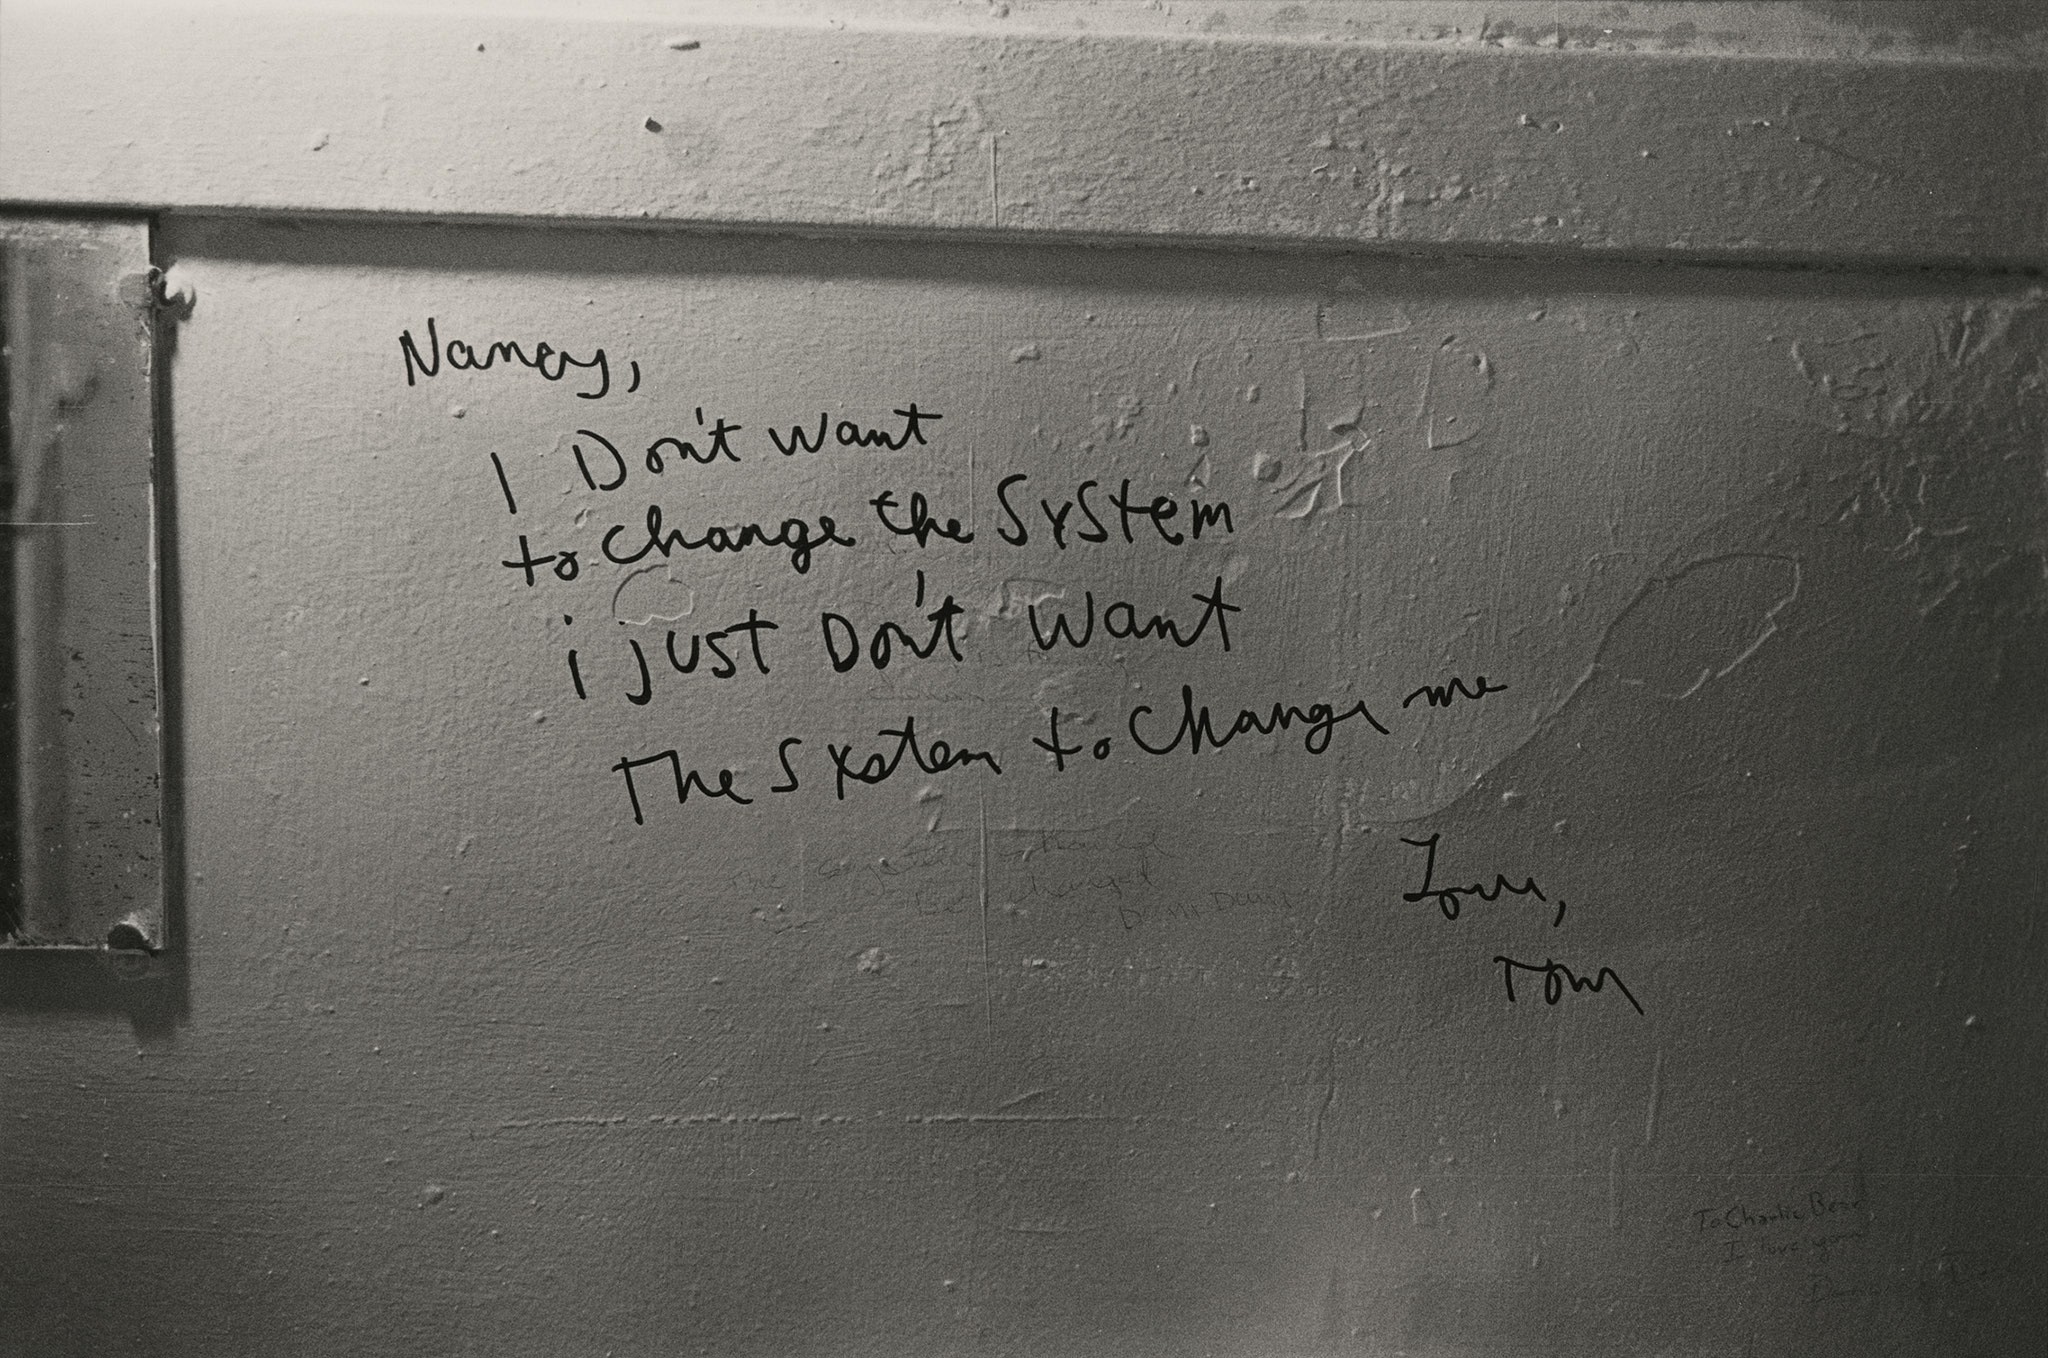 Nancy,
I Don't want
to change the System
i just Don't want
The System to Change me
Love,
Tom
The system
be changed
To Charlie Bear
I love you